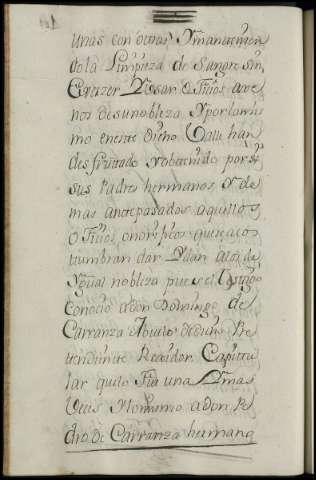 unas con otras Y manteniən
do la Limpieza de Sangre sin
Exerzer Y Usar Oficios age
nos de su nobleza Y por lo mis
mo en este dicho Valle han
desfrutado Y obtenido por sí
sus Padres hermanos Y de
mas antepasados aquellos
Oficios onorificos que se acos
tumbran dar Y dan a los de
Ygual nobleza pues el Testigo
conocio a don Domingo de
Carranza Abuelo de dicho Pre
tendiente Regidor Capitu
lar que lo fue una Y mas
veces Y lo mismo a don Pe
dro de Carranza hermano